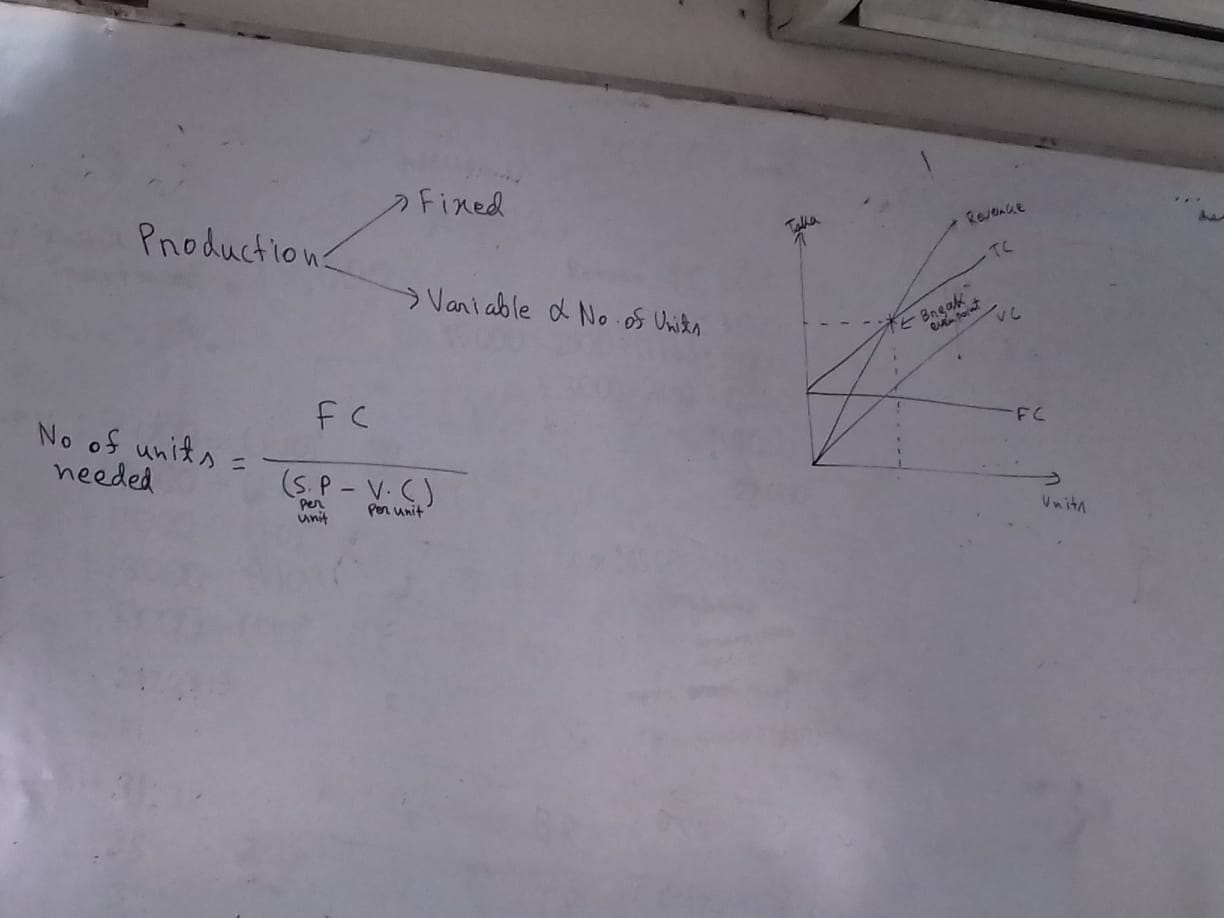 Production
Fixed
Variable ∝ No. of Units
No of units
needed
=
FC
(S.P - V.C)
per
unit
per unit
Taka
Revenue
TC
← Break
even point
VC
FC
Units